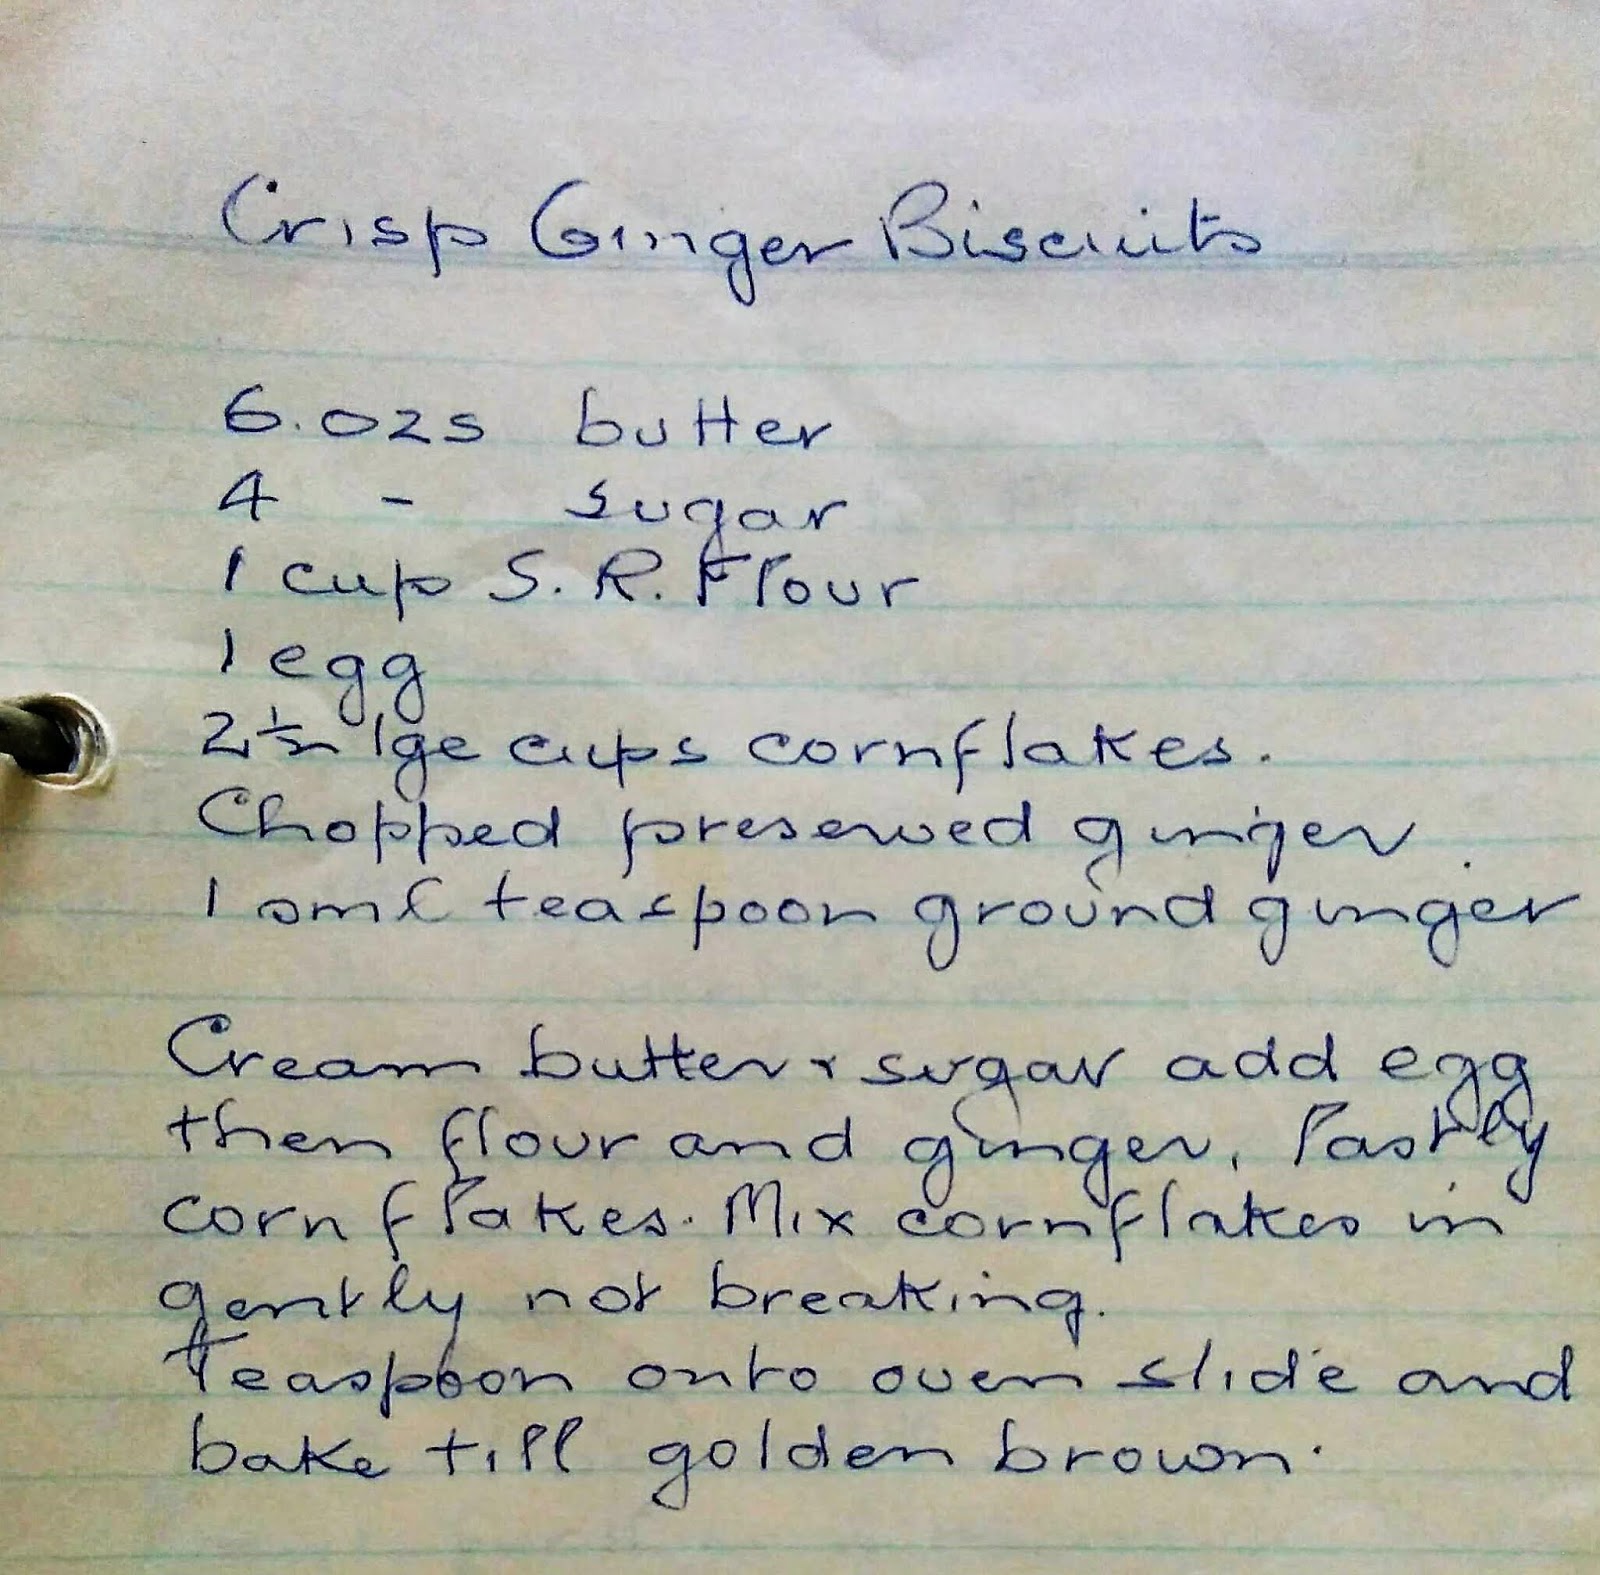 Crisp Ginger Biscuits
6.ozs butter
4 - sugar
1 cup S.R. Flour
1 egg
2½ lge cups cornflakes.
Chopped preserved ginger.
1 sml teaspoon ground ginger
Cream butter + sugar add egg
then flour and ginger, lastly
cornflakes. Mix cornflakes in
gently not breaking.
Teaspoon onto oven slide and
bake till golden brown.